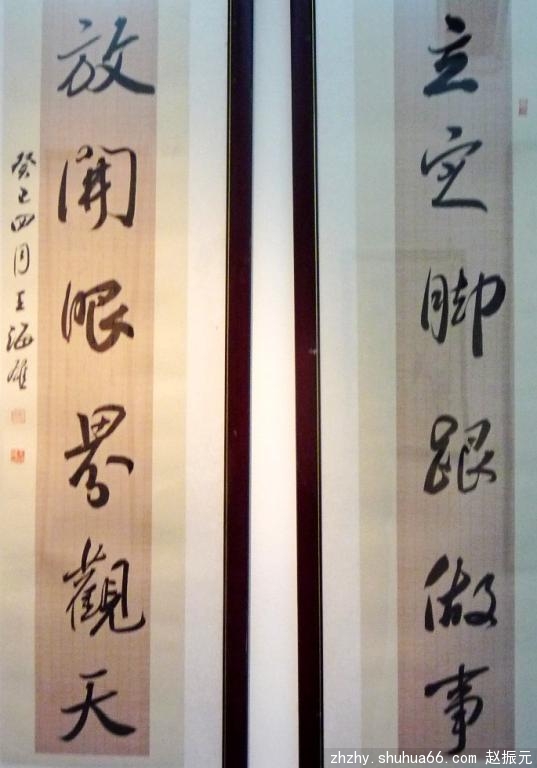 立定脚跟做事
放開眼界觀天
癸巳四月王海雄
zhzhy.shuhua66.com 赵振元